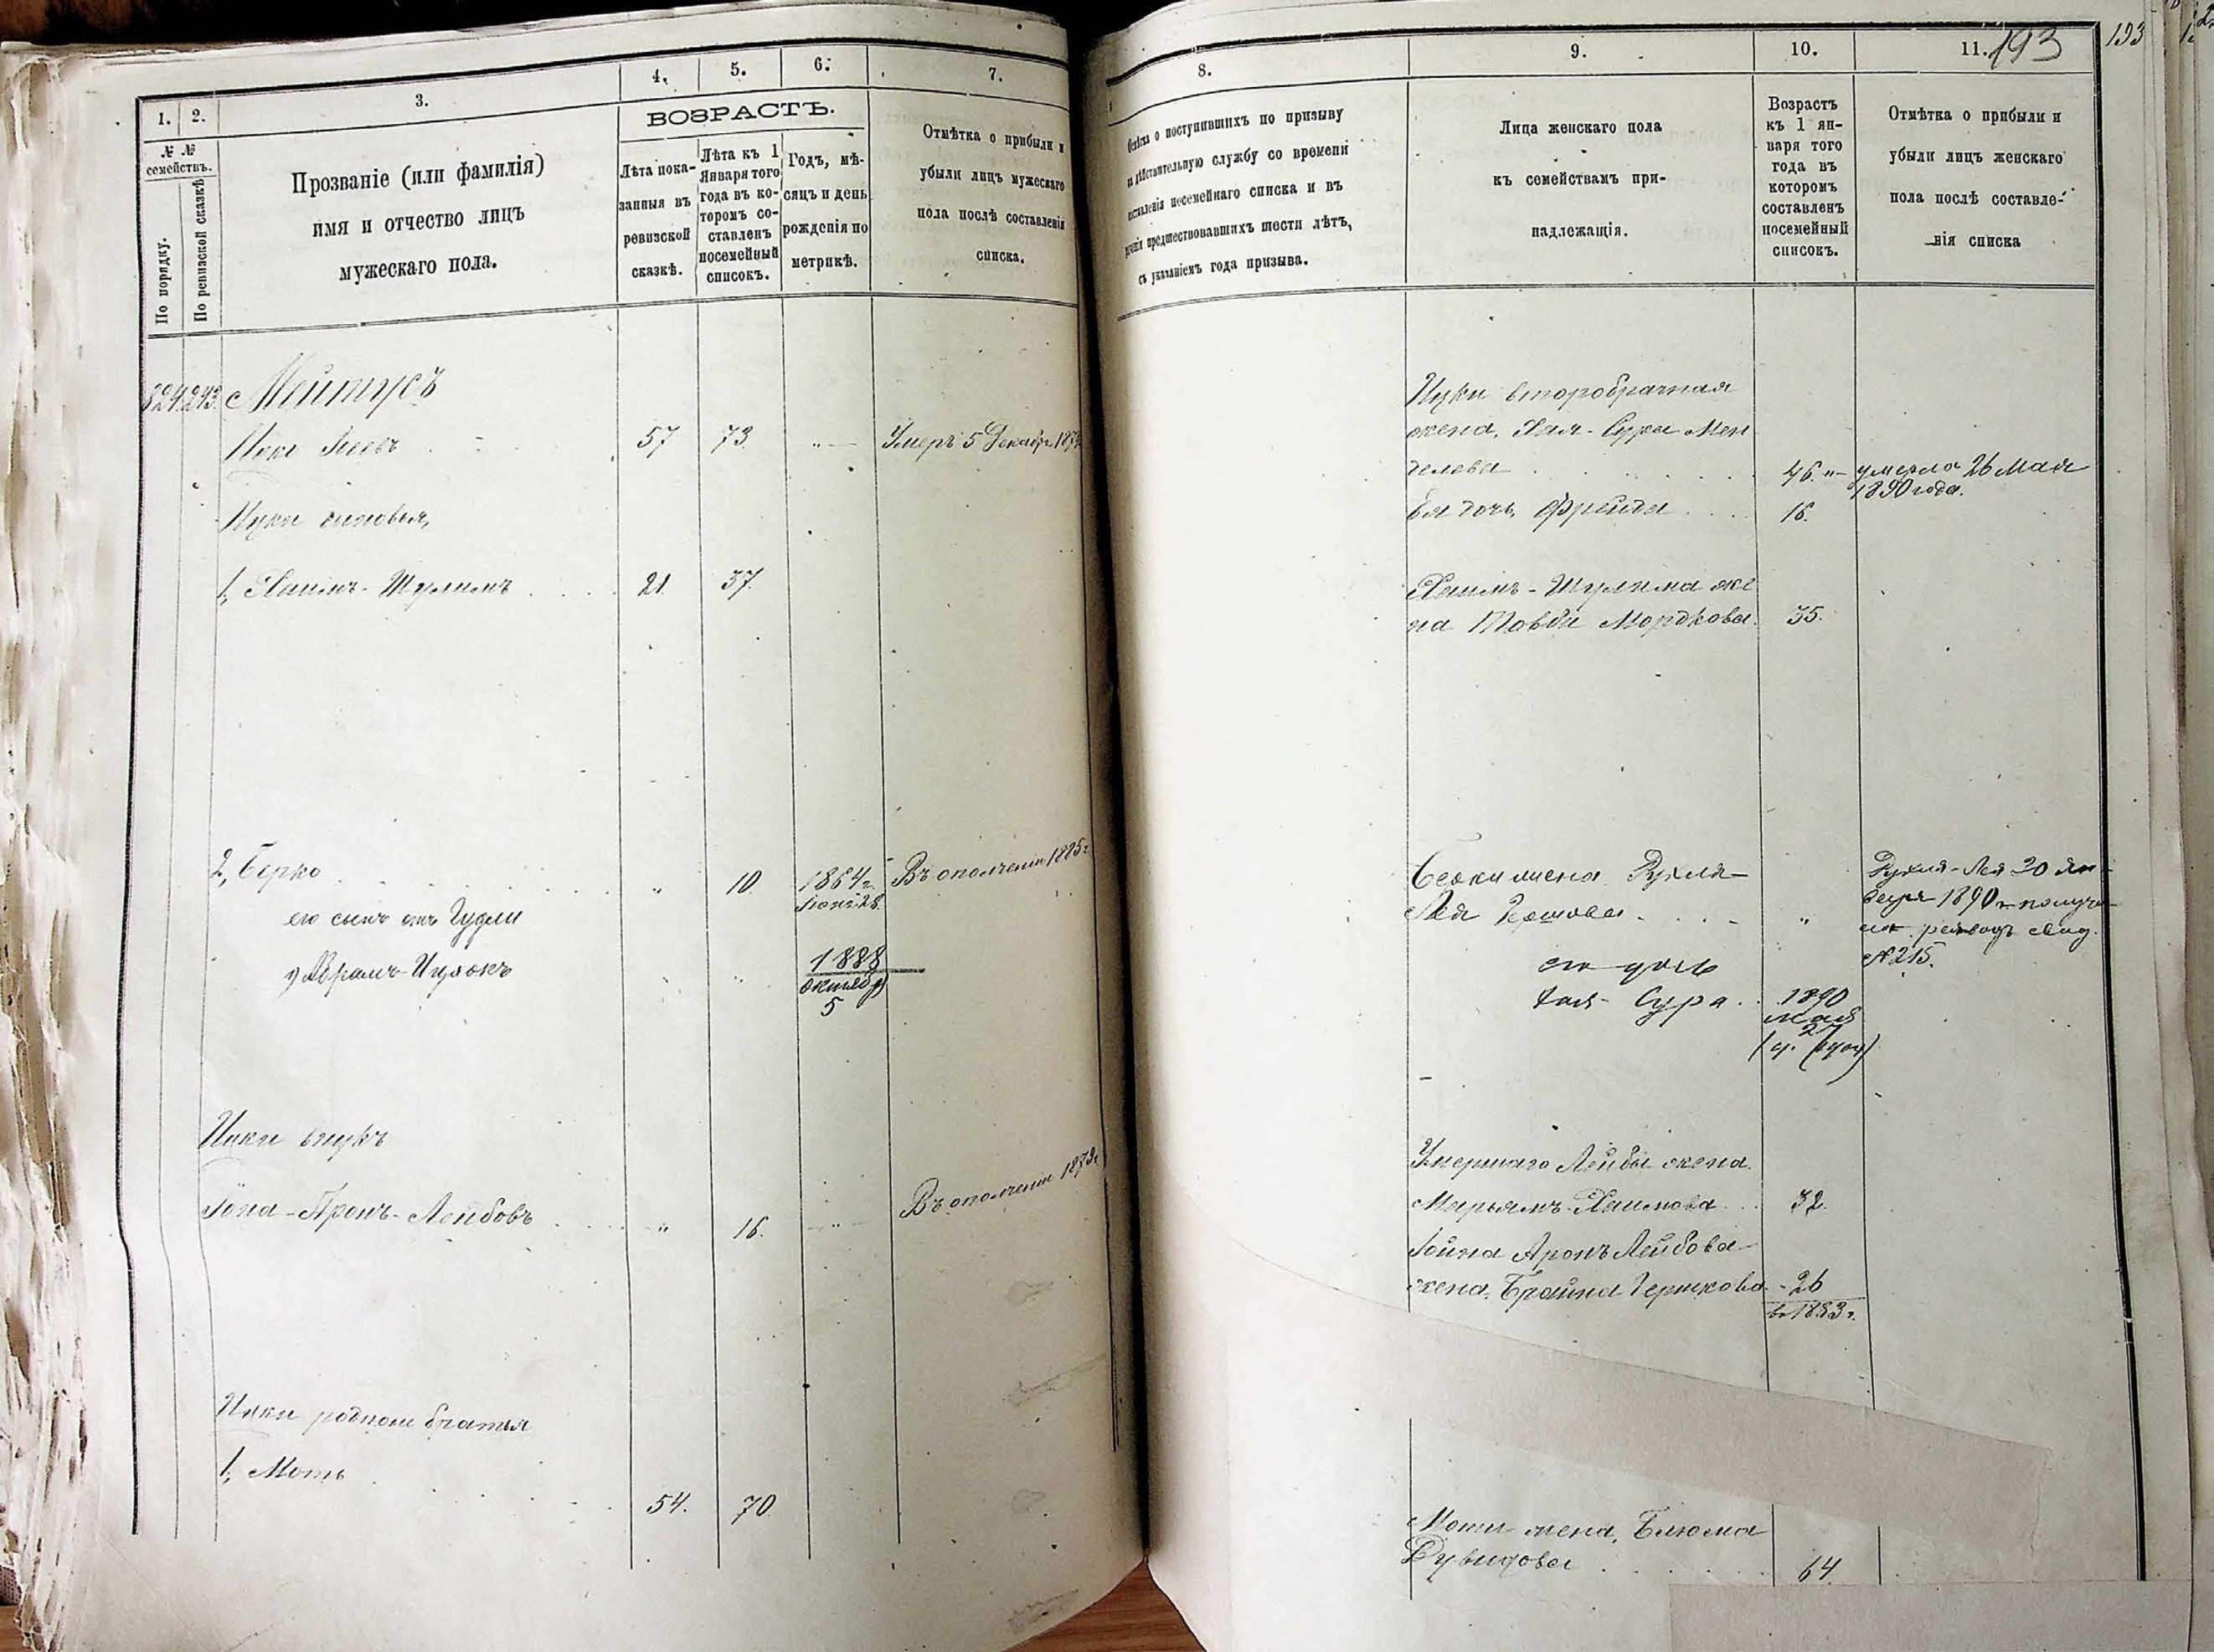 1.
2.
3.
4.
5.
6.
7.
№ №
семействъ.
По порядку.
По ревизской сказкѣ
Прозваніе (или фамилія)
имя и отчество лицъ
мужескаго пола.
ВОЗРАСТЪ.
Лѣта пока-
занныя въ
ревизской
сказкѣ.
Лѣта къ 1
Января того
года въ ко-
торомъ со-
ставленъ
посемейный
списокъ.
Годъ, мѣ-
сяцъ и день
рожденія по
метрикѣ.
Отмѣтка о прибыли и
убыли лицъ мужескаго
пола послѣ составленія
списка.
824 293. Мейтусъ
57 73 "— Умеръ 5 Декабр. 187
Ицки сыновья,
1, Хаимъ-Шулимъ 21 37.
2, Берко " 10 1864 г. Въ ополченіи 1885 г
его сынъ отъ Гудли
Аврамъ-Ицхокъ " " 1888
октябр
5
Ицки внукъ
Іона-Аронъ-Лейбовъ " 16. " Въ ополченіи 187
Ицки родные братья
1, Моть 54. 70.
8.
9.
10.
11.
193
193
о поступившихъ по призыву
дѣйствительную службу со времени
составленія посемейнаго списка и въ
предшествовавшихъ шести лѣтъ,
съ указаніемъ года призыва.
Лица женскаго пола
къ семействамъ при-
надлежащія.
Возрастъ
къ 1 ян-
варя того
года въ
которомъ
составленъ
посемейный
списокъ.
Отмѣтка о прибыли и
убыли лицъ женскаго
пола послѣ составле-
нія списка
Ицки второбрачная
жена, Хая-Сура Мен
делева 46. "— умерла 26 Мая
1890 года.
Ея дочь Фрейда 16.
Хаимъ-Шулима же
на Товба Мордкова. 35.
Берки жена Рухля- Рухля-Лея 20 Ян-
Лея Гершова " варя 1890 г. получи-
ла развод. свид.
№ 215.
его дочь
Хая-Сура 1890
мая
27
Умершаго Лейбы жена
Марьямъ Хаимова 32.
Іойна Аронъ Лейбова
жена, Брайна Гершкова - 26
въ 1883 г.
Моти жена, Блюма
Дувидова 64